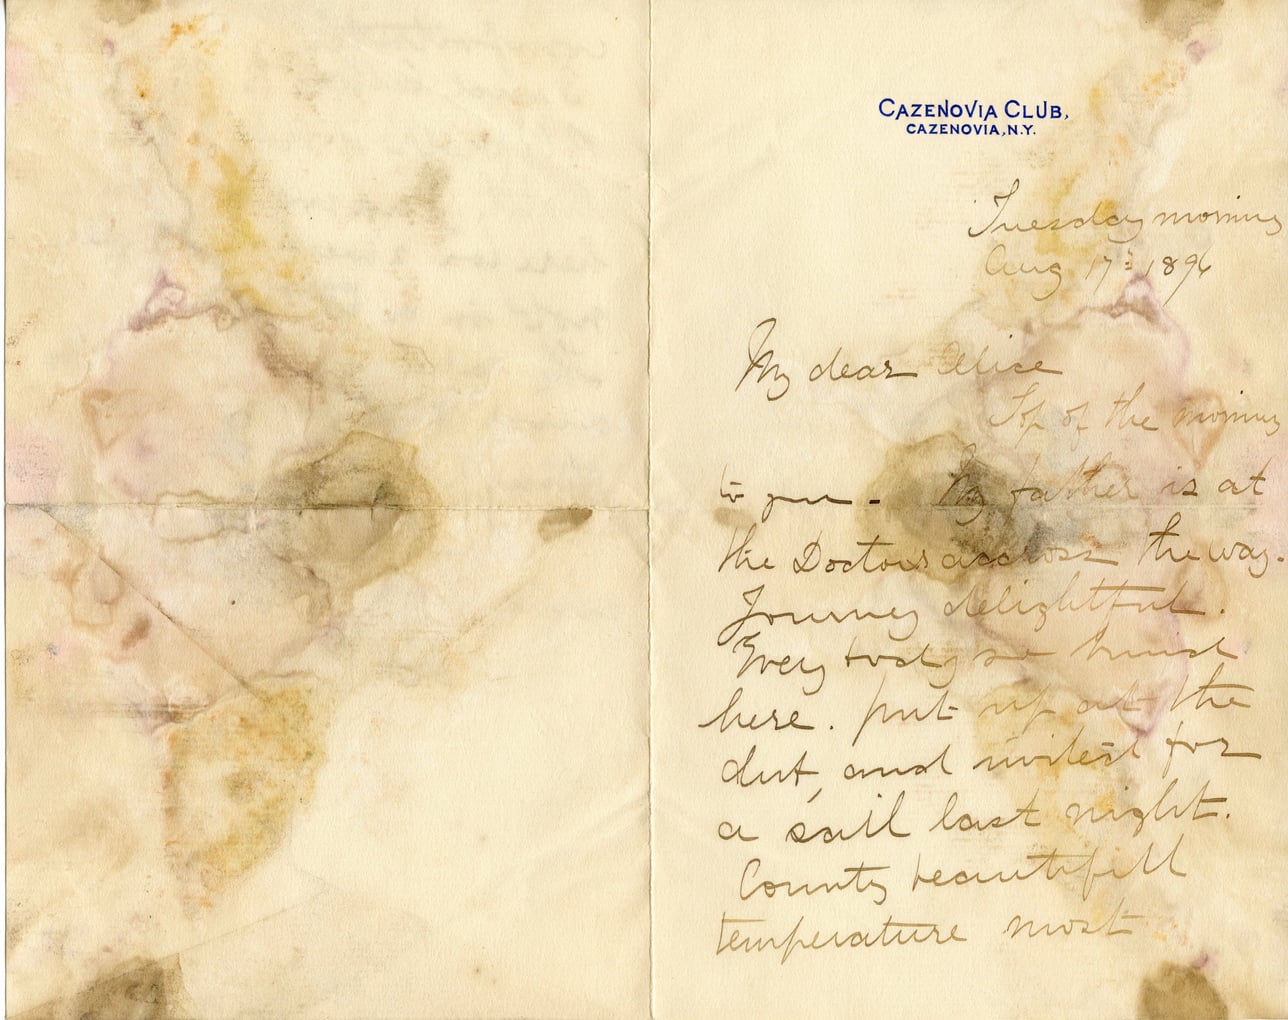 CAZENOVIA CLUB,
CAZENOVIA, N.Y.
Tuesday morning
Aug 17th 1896
My dear Alice
Top of the morning
to you - My father is at
the Doctors accross the way.
Journey delightful.
Every body so kind
here. put up at the
club, and invited for
a sail last night.
County beautifull
temperature most